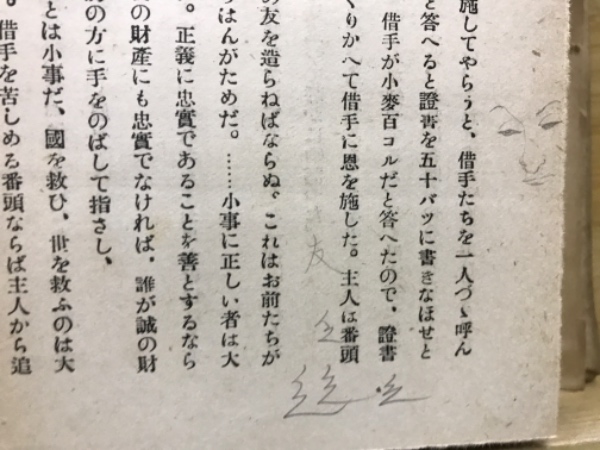 施してやらうと、借手たちを一人づゝ呼ん
と答へると證書を五十バツに書きなほせと
借手が小麥百コルだと答へたので、證書
くりかへて借手に恩を施した。主人は番頭
の友を造らねばならぬ。これはお前たちが
らはんがためだ。……小事に正しい者は大
。正義に忠實であることを善とするなら
の財產にも忠實でなければ、誰が誠の財
の方に手をのばして指さし、
とは小事だ、國を救ひ、世を救ふのは大
。借手を苦しめる番頭ならば主人から追
友